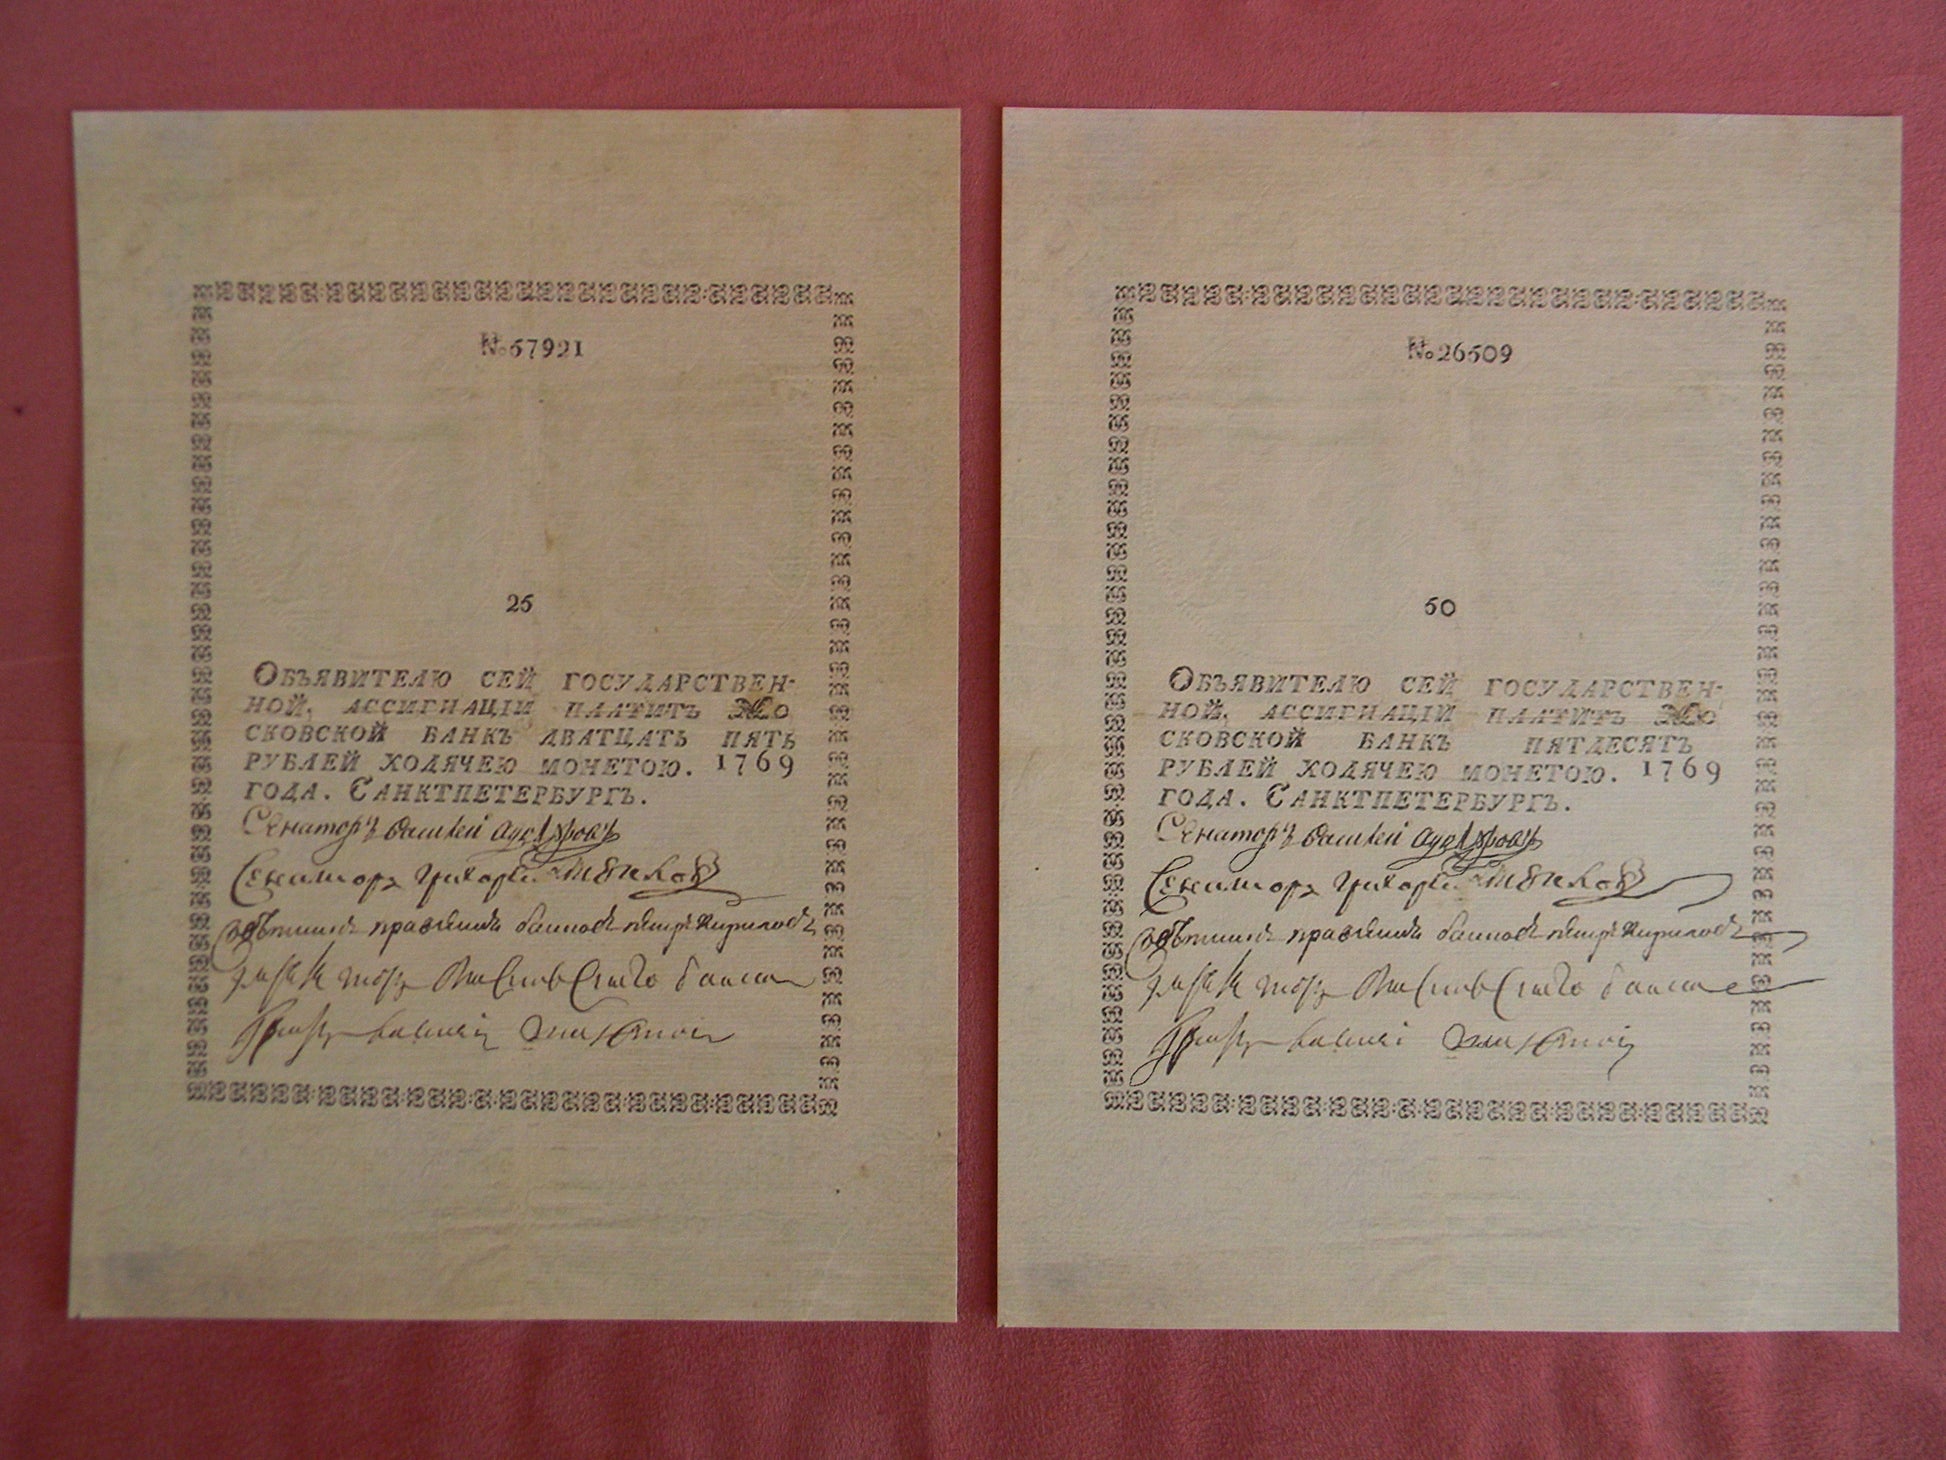 № 57921
25
Объявителю сей государствен-
ной, ассигнаціи платитъ Мо
сковской банкъ дватцать пять
рублей ходячею монетою. 1769
года. Санктпетербургъ.
Сенаторъ
Сенаторъ григорей
Совѣтникъ правленія банковъ петръ кириловъ
Директоръ банка
№ 26509
50
Объявителю сей государствен-
ной, ассигнаціи платитъ Мо
сковской банкъ пятдесятъ
рублей ходячею монетою. 1769
года. Санктпетербургъ.
Сенаторъ
Сенаторъ григорей
Совѣтникъ правленія банковъ петръ кириловъ
Директоръ банка